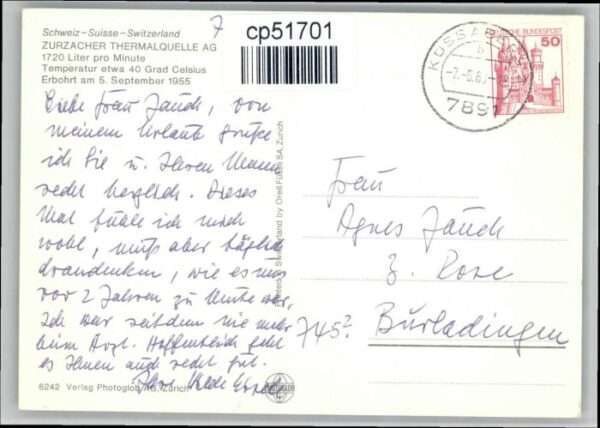 7
cp51701
Schweiz – Suisse – Switzerland
ZURZACHER THERMALQUELLE AG
1720 Liter pro Minute
Temperatur etwa 40 Grad Celsius
Erbohrt am 5. September 1955
DEUTSCHE BUNDESPOST
50
KÜSSABERG
7891
Liebe Frau Jauch, von
meinem Urlaub grüße
ich Sie u. Ihren Mann
recht herzlich. Dieses
Mal fühle ich mich
wohl, muß aber täglich
drandenken, wie es mir
vor 2 Jahren zu Mute war,
Ich war seitdem nie mehr
beim Arzt. Hoffentlich geht
es Ihnen auch recht gut.
Ihre
Frau
Agnes Jauch
z. Rose
7452
Burladingen
Switzerland by Orell Füssli SA, Zürich
6242 Verlag Photoglob AG, Zürich